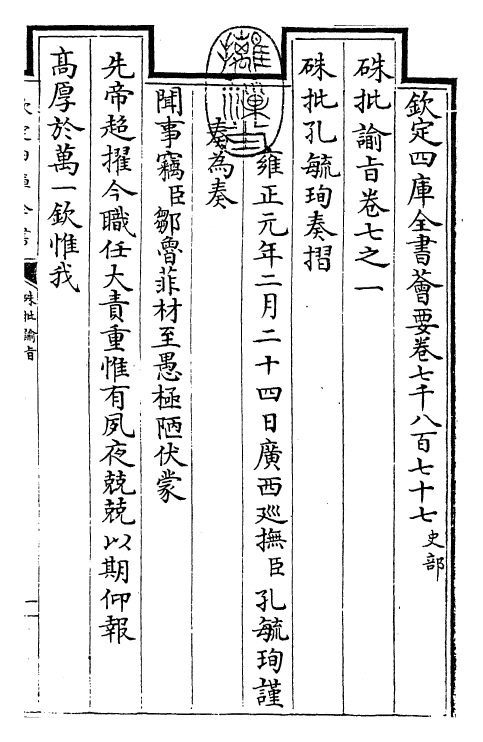 欽定四庫全書薈要卷七千八百七十七 史部
硃批諭旨卷七之一
硃批孔毓珣奏摺
雍正元年二月二十四日廣西廵撫臣孔毓珣謹
奏為奏
聞事竊臣鄒魯菲材至愚極陋伏蒙
先帝超擢今職任大責重惟有夙夜兢兢以期仰報
髙厚於萬一欽惟我
硃批諭旨
一